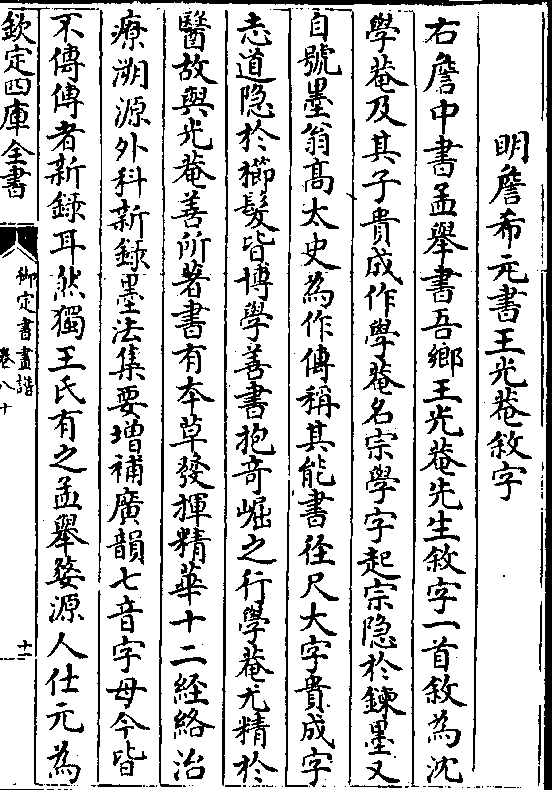 明詹希元書王光菴敘字
右詹中書孟舉書吾鄉王光菴先生敘字一首敘為沈
學菴及其子貴成作學菴名宗學字起宗隐於鍊墨又
自號墨翁髙太史為作傳稱其能書徑尺大字貴成字
志道隐於櫛髮皆博學善書抱竒崛之行學菴尤精於
醫故與光菴善所著書有本草發揮精華十二経絡治
療溯源外科新録墨法集要増補廣韻七音字母今皆
不傳傳者新録耳然獨王氏有之孟舉婺源人仕元為
欽定四庫全書
御定書畫譜
卷八十
十一